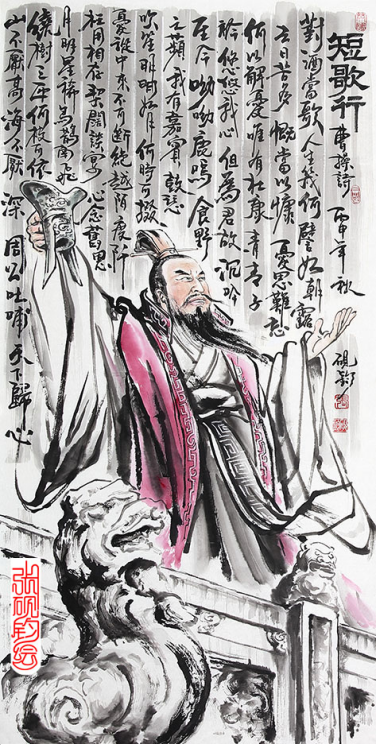 短歌行 曹操詩 丙申年秋
對酒當歌人生幾何譬如朝露
去日苦多慨當以慷憂思難忘
何以解憂唯有杜康青青子
衿悠悠我心但為君故沉吟
至今呦呦鹿鳴食野
之蘋我有嘉賓鼓瑟
吹笙明明如月何時可掇
憂從中來不可斷絕越陌度阡
枉用相存契闊談宴心念舊恩
月明星稀烏鵲南飛
繞樹三匝何枝可依
山不厭高海不厭深周公吐哺天下歸心